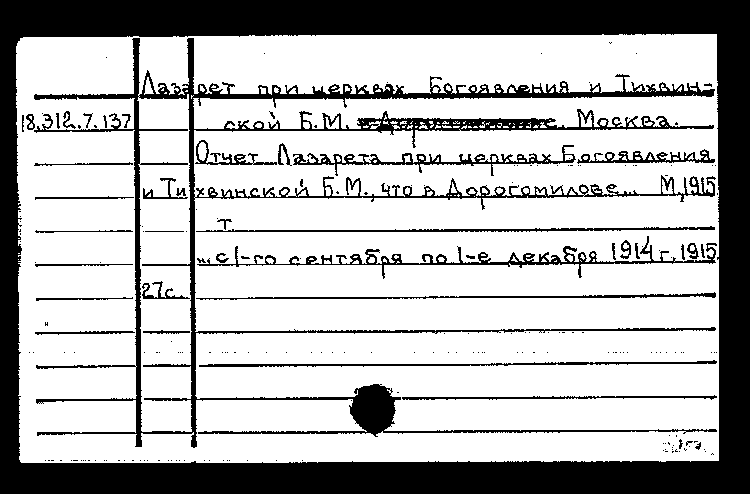 Лазарет при церквах Богоявления и Тихвин=
18.312.7.137 ской Б.М. Москва.
Отчет Лазарета при церквах Богоявления
и Тихвинской Б.М., что в Дорогомилове... М, 1915
т
... с 1-го сентября по 1-е декабря 1914 г, 1915.
27с.